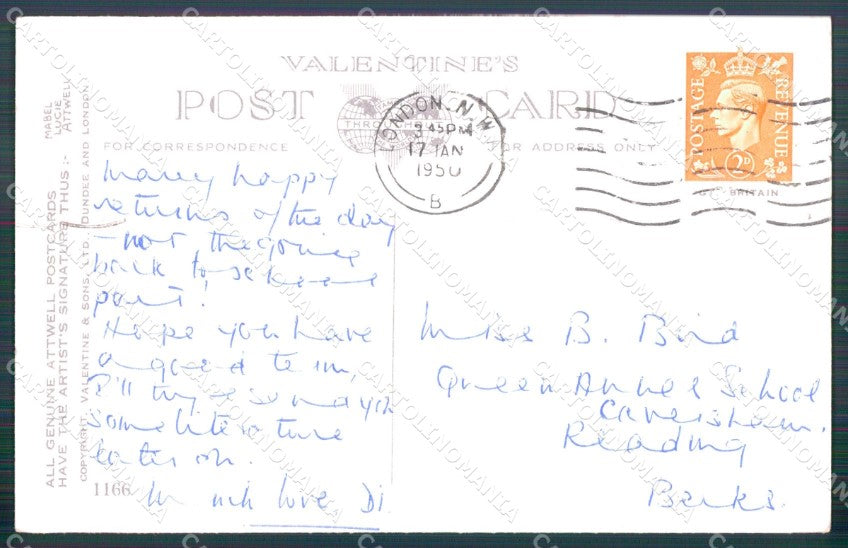 VALENTINE'S
POST CARD
THROUGHOUT
FOR CORRESPONDENCE
FOR ADDRESS ONLY
LONDON. N.W
3 45 PM
17 JAN
1950
B
POSTAGE
REVENUE
2D
BRITAIN
Many happy
returns of the day
- not the going
back to school
part!
Hope you have
a good term,
I'll try & send you
some literature
later on.
Much love Di
Miss B. Bird
Queen Anne's School
Caversham.
Reading
Berks.
ALL GENUINE ATTWELL POSTCARDS
HAVE THE ARTIST'S SIGNATURE THUS :-
MABEL
LUCIE
ATTWELL
COPYRIGHT VALENTINE & SONS, LTD. DUNDEE AND LONDON
1166
CARTOLINOMANIA